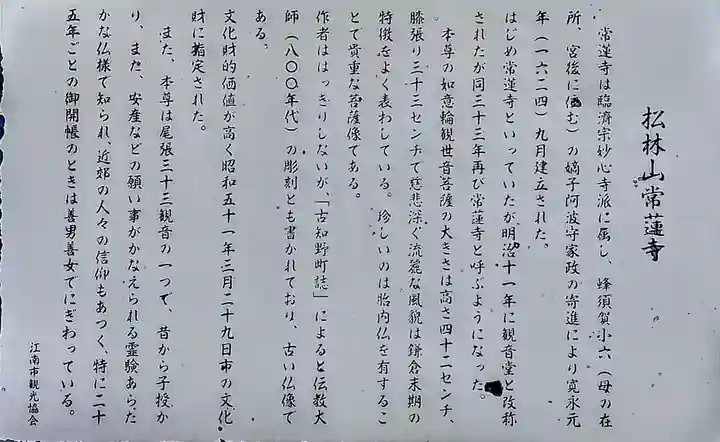 松林山常蓮寺
常蓮寺は臨済宗妙心寺派に属し、蜂須賀小六(母の在
所、宮後に住む)の嫡子阿波守家政の寄進により寛永元
年(一六二四)九月建立された。
はじめ常蓮寺といっていたが明治十一年に観音堂と改称
されたが同三十三年再び常蓮寺と呼ぶようになった。
本尊の如意輪観世音菩薩の大きさは高さ四十二センチ、
膝張り三十三センチで慈悲深く流麗な風貌は鎌倉末期の
特徴をよく表わしている。珍しいのは胎内仏を有するこ
とで貴重な菩薩像である。
作者ははっきりしないが、「古知野町誌」によると伝教大
師(八〇〇年代)の彫刻とも書かれており、古い仏像で
ある。
文化財的価値が高く昭和五十一年三月二十九日市の文化
財に指定された。
また、本尊は尾張三十三観音の一つで、昔から子授か
り、また、安産などの願い事がかなえられる霊験あらた
かな仏様で知られ、近郊の人々の信仰もあつく、特に二十
五年ごとの御開帳のときは善男善女でにぎわっている。
江南市観光協会